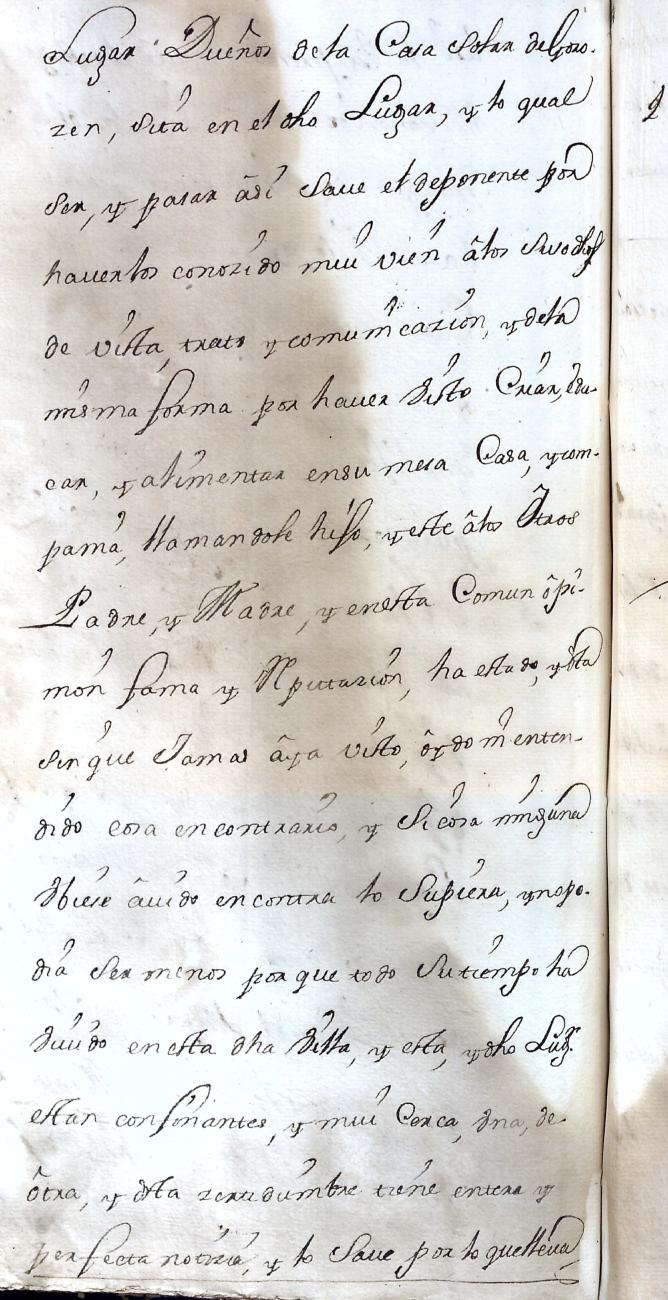 Lugar Dueños dela Casa Solar de Goro-
zen, sita en el dho Lugar, y lo qual
ser, y pasar âsi Save el deponente por
haverlos conozido mui vien âlos Suso dhos
de vista, trato y comunicazion, y dela
misma forma por haver visto Criar, êdu-
car, y alimentar ensu mesa Casa, y com-
pania, llamandole hijo, y este âlos Ôtros
Padre, y Madre, y enesta Comun ôpi-
nion fama y Reputazion, ha estado, y êsta
sin que Jamas âya visto, ôydo ni enten-
dido cosa en contrario, y Si cosa ninguna
Ubiese âuido en contra lo Supiera, y nopo-
dia Ser menos por que todo Su tiempo ha
viuido en esta dha villa, y esta, y dho Lugr.
estan confinantes, y mui Cerca, Una, de
ôtra, y dsta zertidumbre tiene entera y
perfecta notizia, y lo Save por lo que lleua